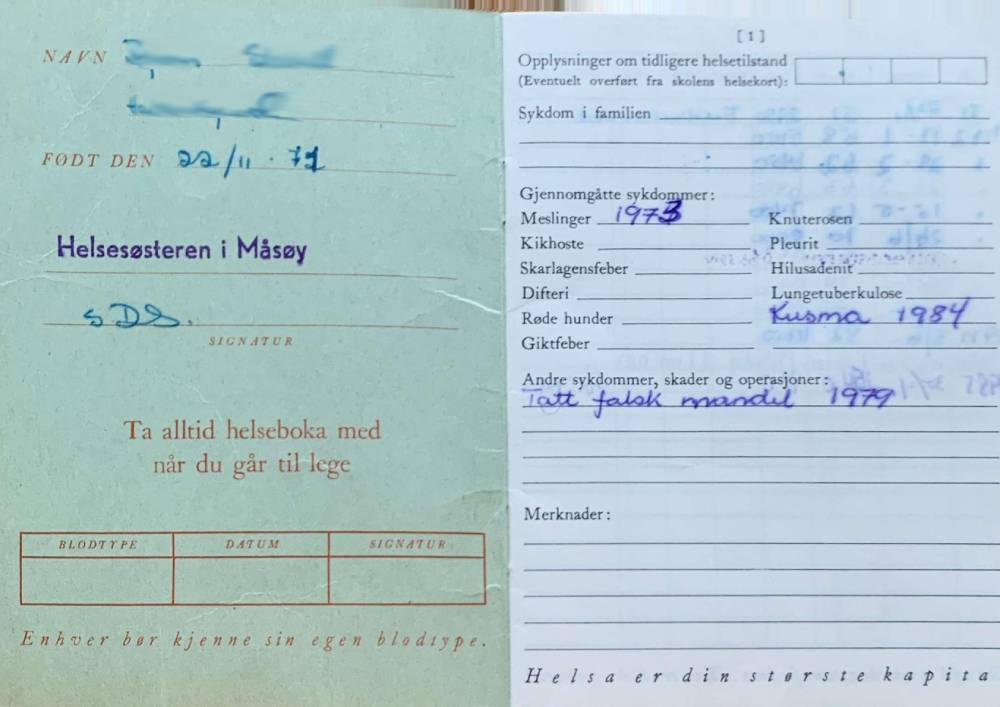 NAVN
FØDT DEN 22/11 - 71
Helsesøsteren i Måsøy
SIGNATUR
Ta alltid helseboka med
når du går til lege
BLODTYPE DATUM SIGNATUR
Enhver bør kjenne sin egen blodtype.
[1]
Opplysninger om tidligere helsetilstand
(Eventuelt overført fra skolens helsekort):
Sykdom i familien
Gjennomgåtte sykdommer:
Meslinger 1973 Knuterosen
Kikhoste Pleurit
Skarlagensfeber Hilusadenit
Difteri Lungetuberkulose
Røde hunder Kusma 1984
Giktfeber
Andre sykdommer, skader og operasjoner:
Tatt falsk mandel 1979
Merknader:
Helsa er din største kapita